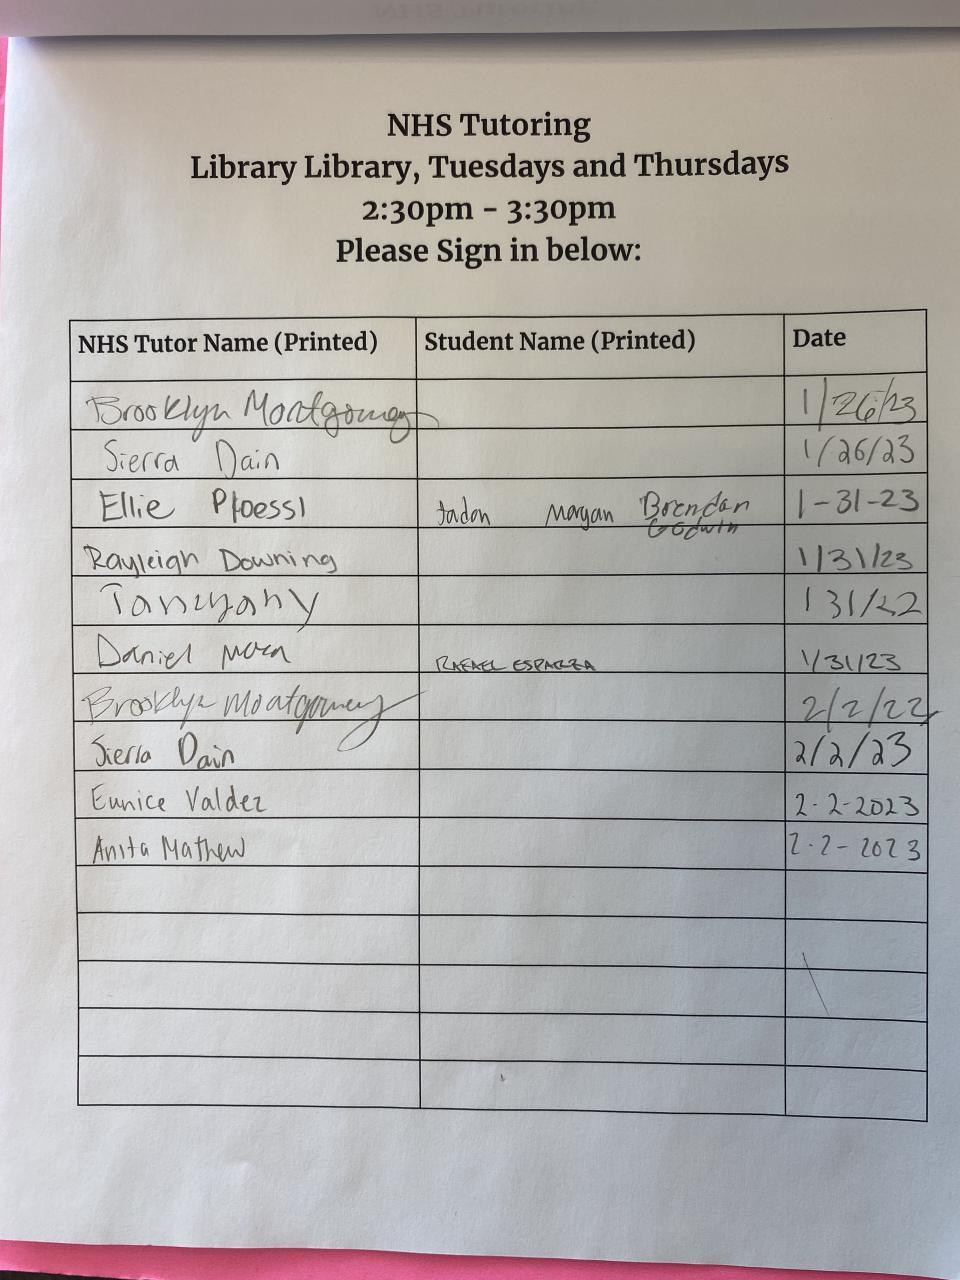 NHS Tutoring
Library Library, Tuesdays and Thursdays
2:30pm - 3:30pm
Please Sign in below:
NHS Tutor Name (Printed) Student Name (Printed) Date
Brooklyn Montgomery 1/26/23
Sierra Dain 1/26/23
Ellie Ploessl Jadon Morgan Brendan 1-31-23
Godwin
Rayleigh Downing 1/31/23
1 31/22
Daniel RAFAEL ESPARZA 1/31/23
Brooklyn Montgomery 2/2/22
Sierra Dain 2/2/23
Eunice Valdez 2-2-2023
Anita Mathew 2-2-2023